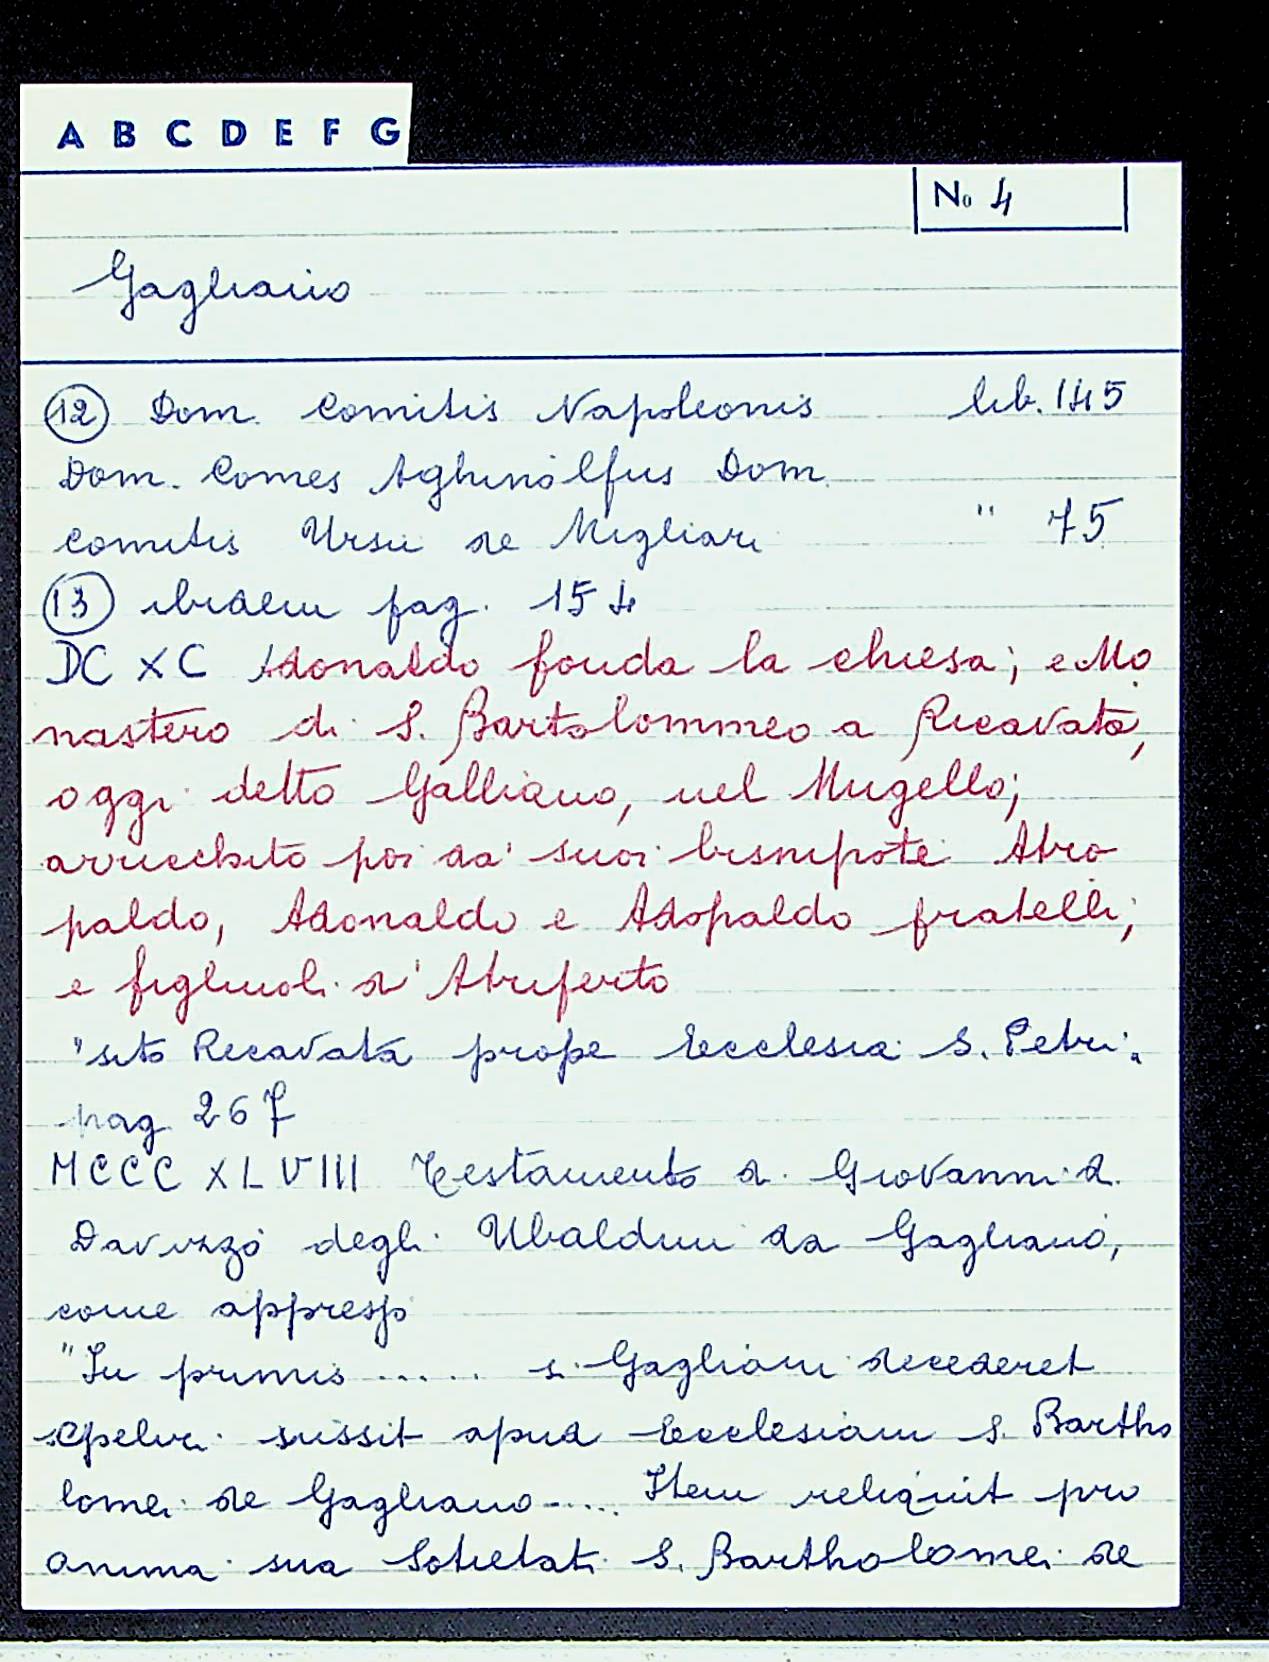 A B C D E F G
No 4
Gagliano
(12) Dom. Comitis Napoleonis lib. 145
Dom. Comes Aghinolfus Dom.
Comitis Ursi de Migliari " 75
(13) ibidem pag. 154
DCXC Adonaldo fonda la chiesa; e Mo
nastero di S. Bartolommeo a Ricavata,
oggi detto Galliano, nel Mugello;
arricchito poi da' suoi bisnipoti Atro
paldo, Adonaldo e Adopaldo fratelli;
e figliuoli d'Atriperto
"sito Recavata prope Ecclesia S. Petri"
pag. 267
MCCCXLVIII Testamento di Giovanni di
Davizzo degli Ubaldini da Gagliano,
come appresso
"In primis ..... Gagliani decederet
sepeliri iussit apud Ecclesiam S. Bartho
lomei de Gagliano .... Item reliquit pro
anima sua Sotietati S. Bartholomei de